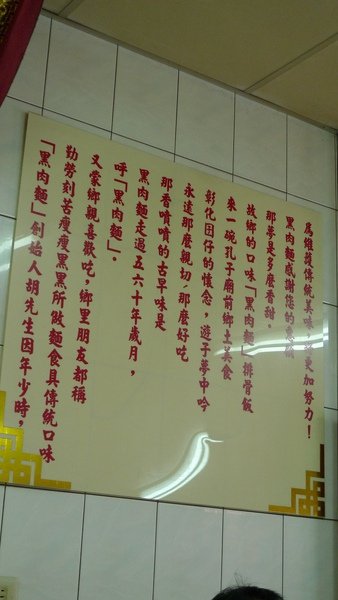 「黑肉麵」創始人胡先生因年少時，
勤勞刻苦瘦瘦黑黑所做麵食具傳統口味
又蒙鄉親喜歡吃，鄉里朋友都稱
呼「黑肉麵」。
黑肉麵走過五六十年歲月，
那香噴噴的古早味是
永遠那麼親切，那麼好吃
彰化囝仔的懷念，遊子夢中吟
來一碗孔子廟前鄉土美食
故鄉的口味「黑肉麵」排骨飯
那夢是多麼香甜。
黑肉麵感謝您的惠顧
為維護傳統美味更加努力！